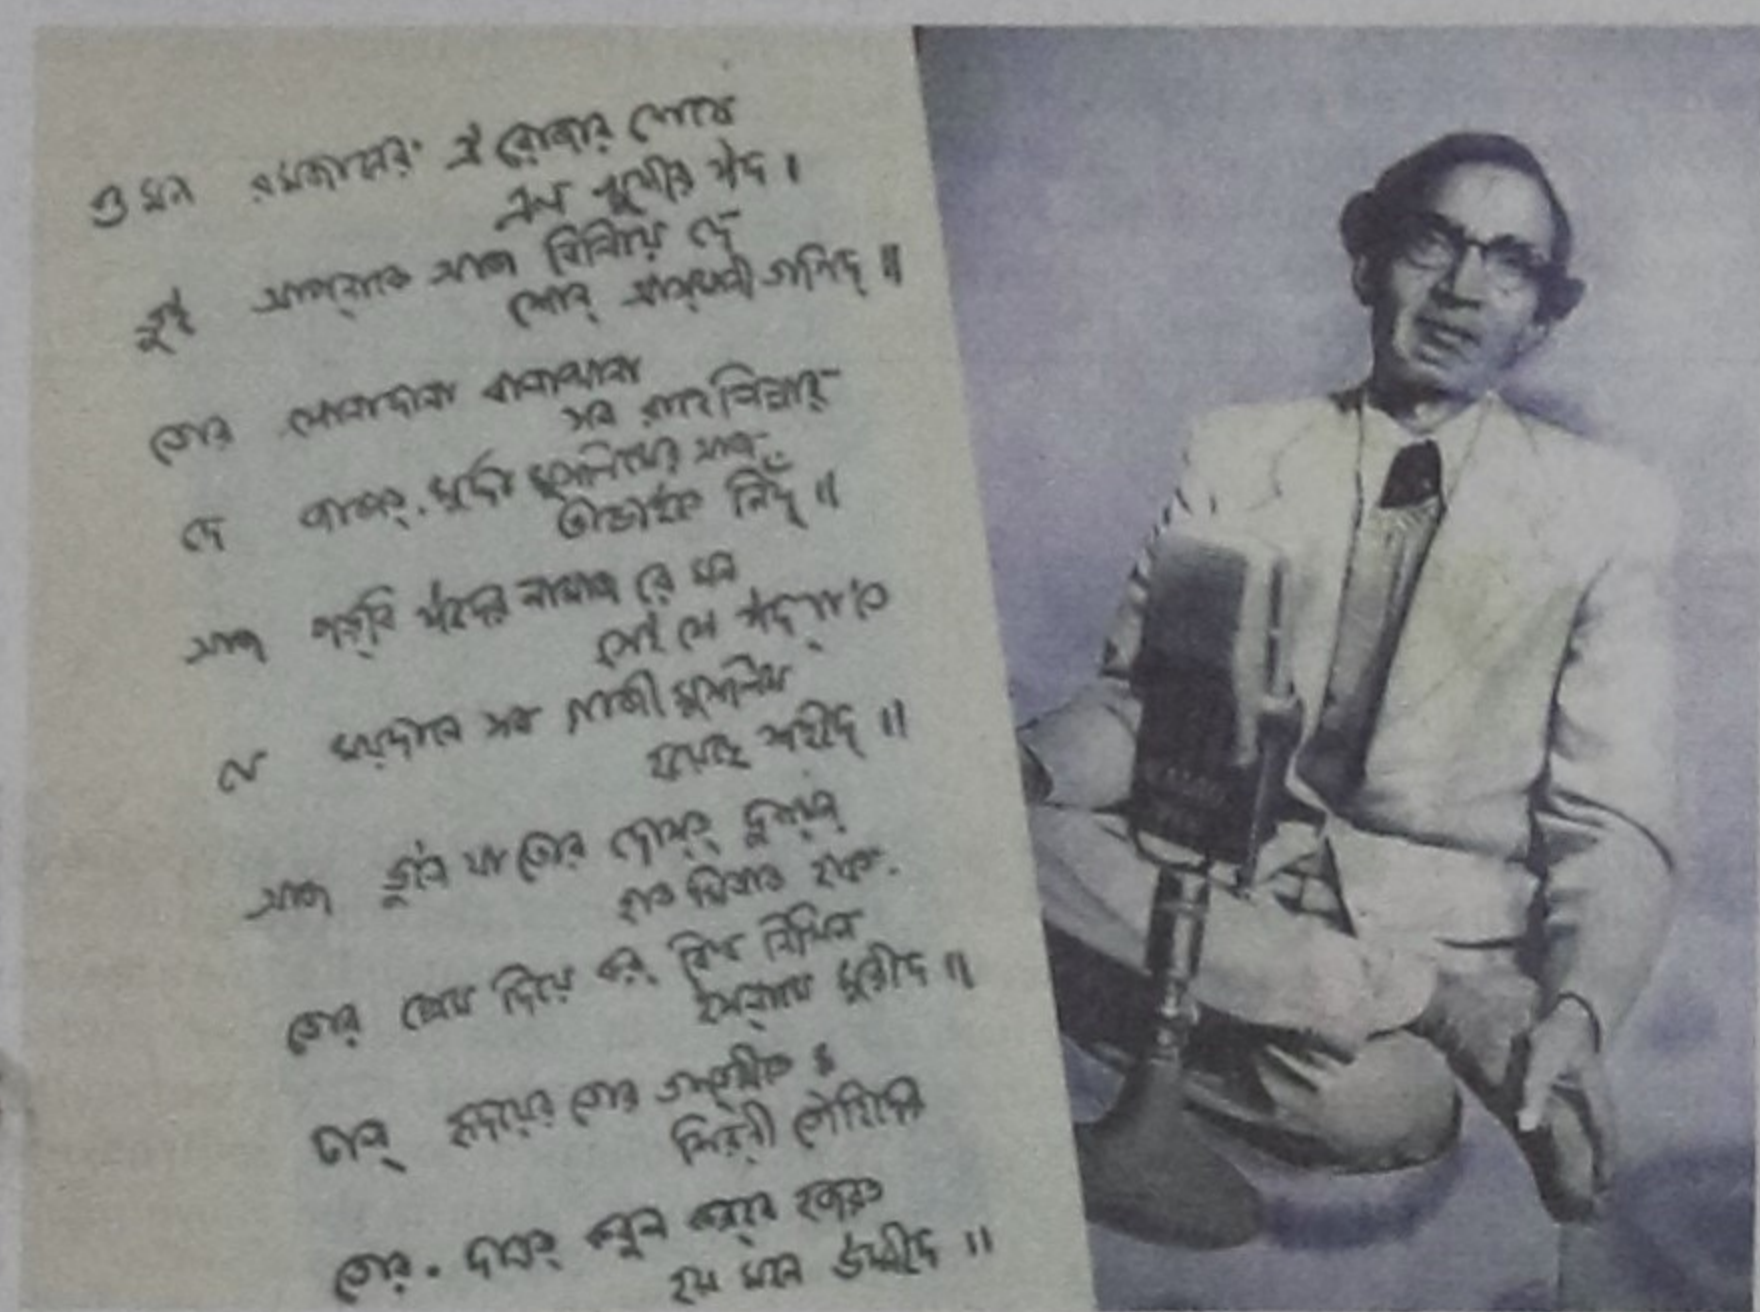 ও মন রমজানের ঐ রোজার শেষে
এল খুশীর ঈদ।
তুই আপনাকে আজ বিলিয়ে দে
শোন্ আস্‌মানী তাগিদ্॥
তোর সোনাদানা বালাখানা
সব রাহে লিল্লাহ্
দে জাকাত্, মুর্দা মুসলিমের আজ
ভাঙাইতে নিঁদ্॥
আজ পড়্‌বি ঈদের নামাজ রে মন
সেই সে ঈদ্‌গাহে
যে ময়্‌দানে সব গাজী মুসলিম
হয়েছে শহীদ্॥
আজ ভুলে যা তোর দোস্ত্ দুশ্‌মন্
হাত মিলাও হাতে.
তোর প্রেম দিয়ে কর্ বিশ্ব নিখিল
ইস্‌লামে মুরীদ॥
ঢাল্ হৃদয়ের তোর তশ্‌তরীতে
শির্‌নী তৌহিদের
তোর. দাওত্ কবুল কর্‌বে হজরত
হয় মনে উম্মীদ॥